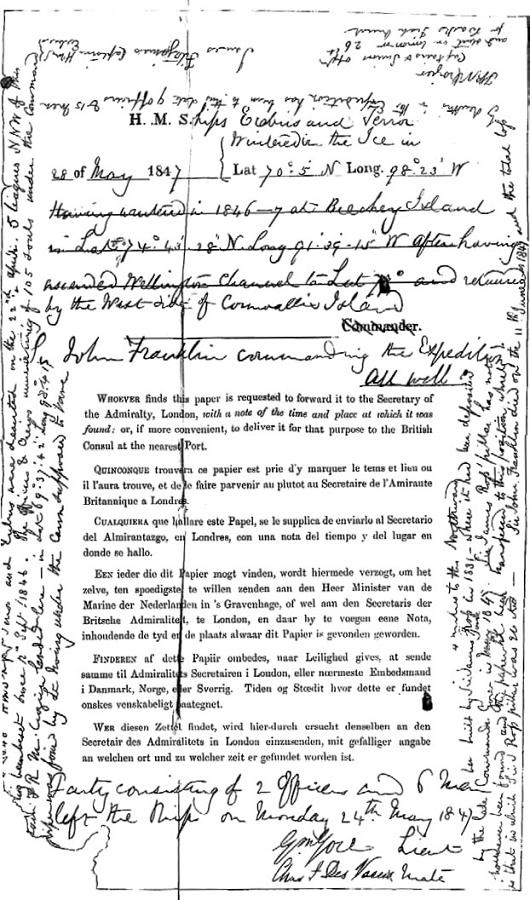 H. M. Ships Erebus and Terror
Wintered in the Ice in
28 of May 1847 Lat 70°·5' N Long. 98°·23' W
Having wintered in 1846–7 at Beechey Island
in Lat 74°·43'·28" N. Long 91°·39'·15" W After having
ascended Wellington Channel to Lat 77° and returned
by the West side of Cornwallis Island
Commander.
John Franklin commanding the Expedition
All well
WHOEVER finds this paper is requested to forward it to the Secretary of
the Admiralty, London, with a note of the time and place at which it was
found: or, if more convenient, to deliver it for that purpose to the British
Consul at the nearest Port.
QUINCONQUE trouvera ce papier est prie d'y marquer le tems et lieu ou
il l'aura trouve, et de le faire parvenir au plutot au Secretaire de l'Amirante
Britannique a Londres.
CUALQUIERA que hallare este Papel, se le suplica de enviarlo al Secretario
del Almirantazgo, en Londres, con una nota del tiempo y del lugar en
donde se hallo.
EEN ieder die dit Papier mogt vinden, wordt hiermede verzogt, om het
zelve, ten spoedigste, te willen zenden aan den Heer Minister van de
Marine der Nederlanden in 's Gravenhage, of wel aan den Secretaris der
Britsche Admiraliteit, te London, en daar by te voegen eene Nota,
inhoudende de tyd en de plaats alwaar dit Papier is gevonden geworden.
FINDEREN af dette Papiir ombedes, naar Leilighed gives, at sende
samme til Admiralitets Secretairen i London, eller nœrmeste Embedsmand
i Danmark, Norge, eller Sverrig. Tiden og Stœdit hvor dette er fundet
onskes venskabeligt paategnet.
WER diesen Zettel findet, wird hier-durch ersucht denselben an den
Secretair des Admiralitets in London einzusenden, mit gefälliger angabe
an welchen ort und zu welcher zeit er gefundet worden ist.
Party consisting of 2 Officers and 6 Men
left the Ships on Monday 24th May 1847
Gm Gore Lieut
Chas F Des Voeux Mate
Terror and Erebus were deserted on the 22nd April. 5 leagues NNW of this
having been beset since 12th Septr 1846. The Officers & Crews consisting of 105 souls under the Command
of Captain F.R.M. Crozier landed here — in Lat 69°37'42" Long 98°41'
This paper was found by Lt Irving under the Cairn supposed to have
been built by Sir James Ross in 1831 – where it had been deposited
4 miles to the Northward
by the late Commander Gore in June 1847. Sir James Ross' pillar has not
however been found and the paper has been transferred to this position which
is that in which Sir J Ross pillar was erected – Sir John Franklin died on the 11th June 1847 and the total loss
by deaths in the Expedition has been to this date 9 officers & 15 men
James Fitzjames Captain HMS Erebus
FRM Crozier
Captain & Senior Offr
and start on tomorrow 26th
for Backs Fish River